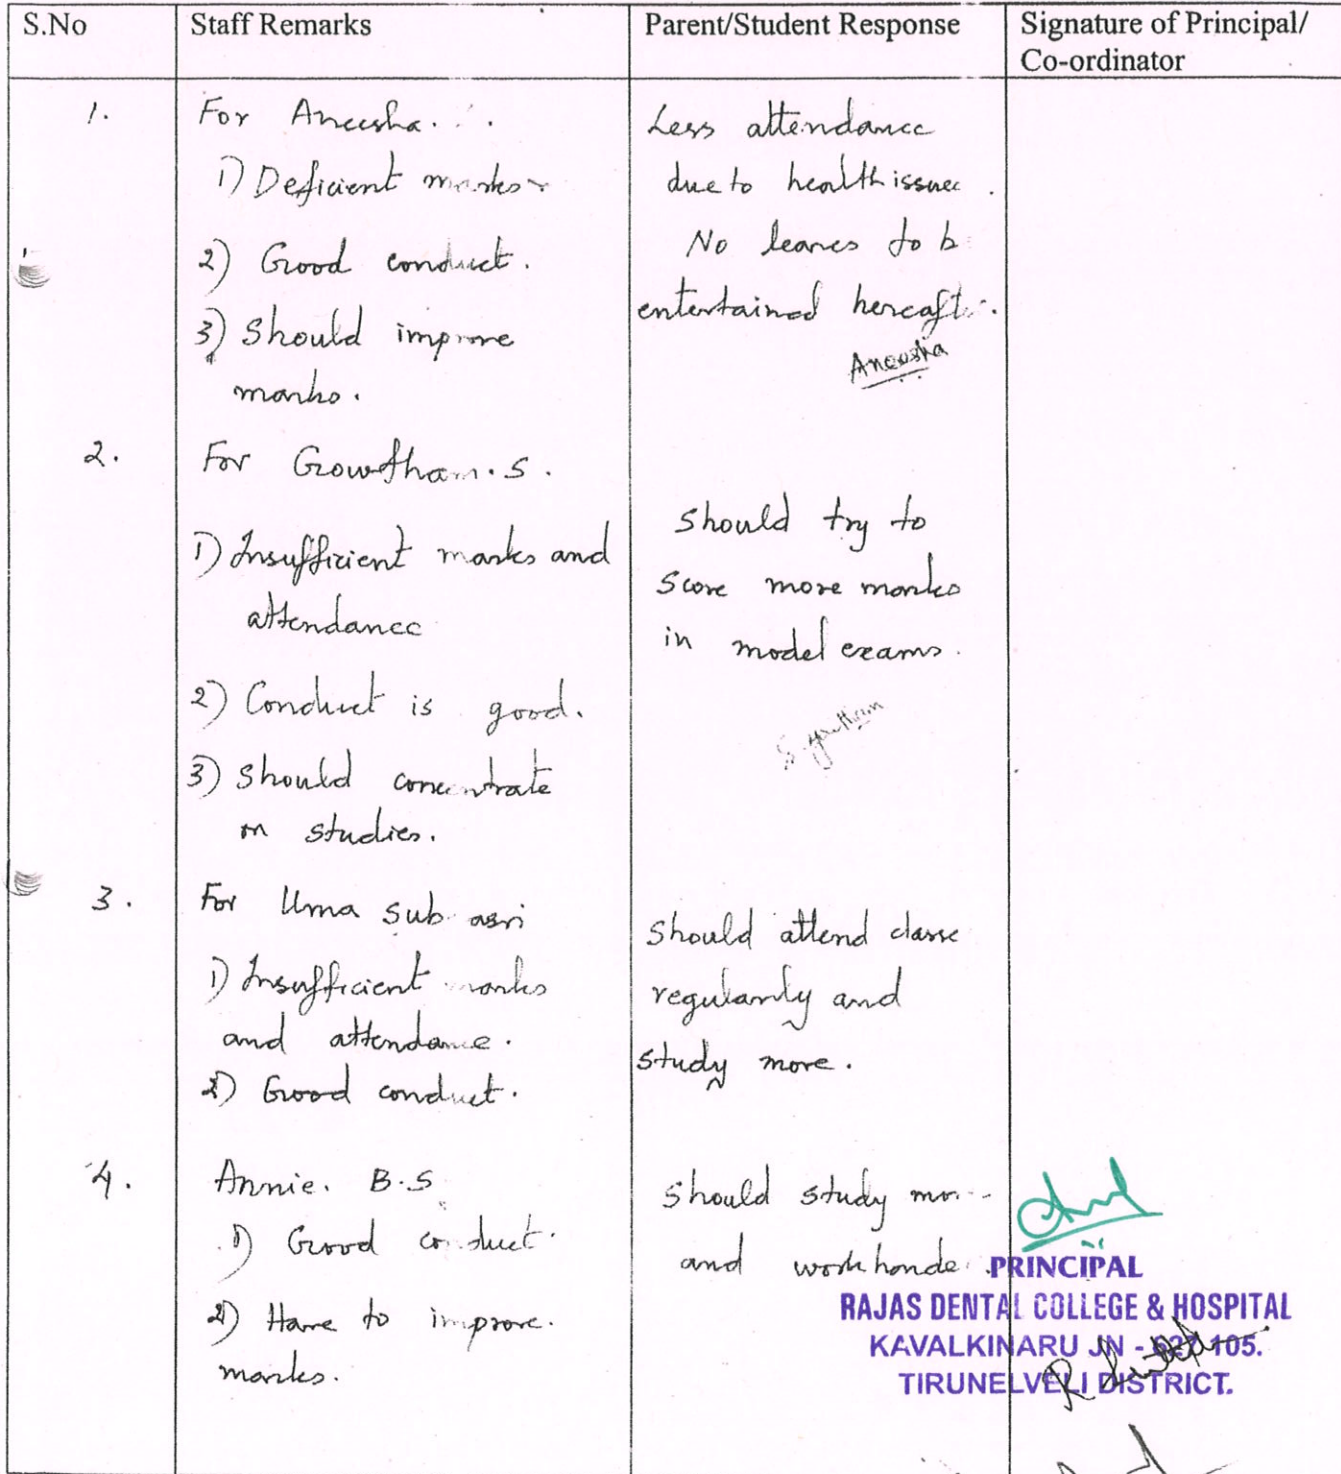 S.No Staff Remarks Parent/Student Response Signature of Principal/
Co-ordinator
1. For Aneesha.
1) Deficient marks
2) Good conduct.
3) Should improve
marks.
Less attendance
due to health issues.
No leaves to b
entertained hereaft
Aneesha
2. For Gowtham.S.
1) Insufficient marks and
attendance
2) Conduct is good.
3) Should concentrate
on studies.
Should try to
score more marks
in model exams.
S. Gowtham
3. For Uma Sub asri
1) Insufficient marks
and attendance.
2) Good conduct.
Should attend classe
regularly and
study more.
4. Annie. B.S
1) Good conduct.
2) Have to improve.
marks.
Should study mor
and work harde
PRINCIPAL
RAJAS DENTAL COLLEGE & HOSPITAL
KAVALKINARU JN - 627 105.
TIRUNELVELI DISTRICT.